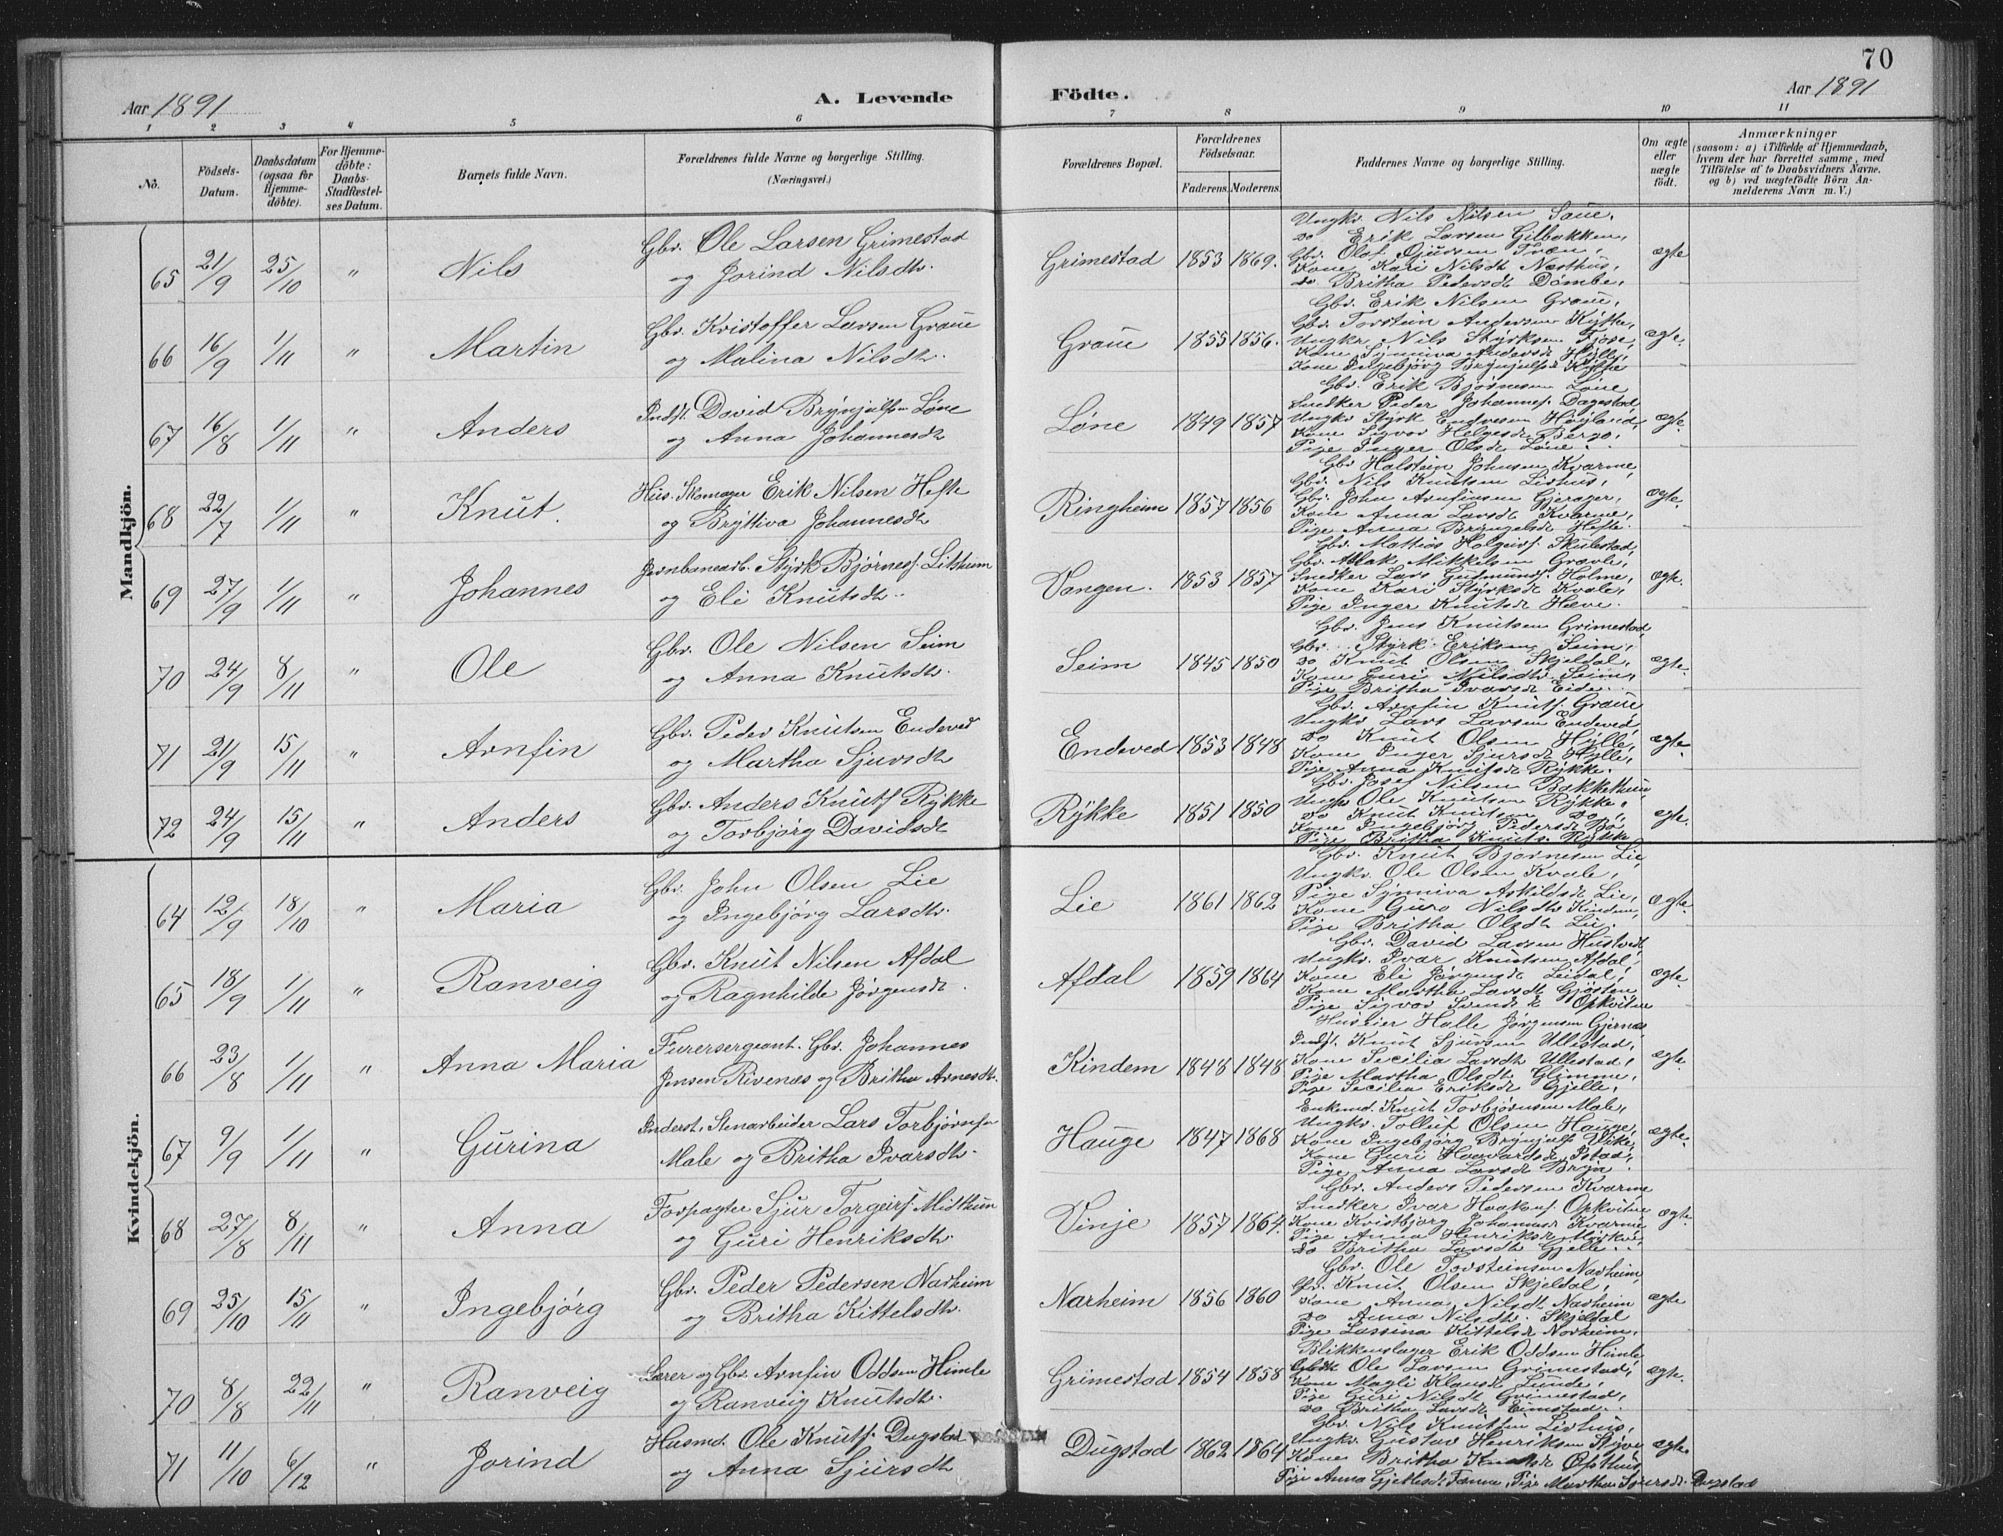 70
Aar 1891
A. Levende
Födte.
Aar 1891
1 2 3 4 5 6 7 8 9 10 11
No.
Födsels-Datum.
Daabsdatum (ogsaa for Hjemme-döbte).
For Hjemme-döbte: Daabs-Stadfæstel-ses Datum.
Barnets fulde Navn.
Forældrenes fulde Navne og borgerlige Stilling. (Næringsvei.)
Forældrenes Bopæl.
Forældrenes Födselsaar.
Faderens. Moderens.
Faddernes Navne og borgerlige Stilling.
Om ægte eller uægte födt.
Anmærkninger
(saasom: a) i Tilfælde af Hjemmedaab, hvem der har forrettet samme, med Tilföielse af to Daabsvidners Navne, og b) ved uægtefödte Börn An-melderens Navn m. V.)
Mandkjön.
65 21/9 25/10 " Nils Gbr. Ole Larsen Grimestad
og Jorind Nilsdtr. Grimestad 1853 1869. ægte
Ungkr. Nils Nilsen Saue,
Do Erik Larsen Gilbakken,
Kone Kari Nilsdtr Næsthus,
Do Britha Pedersdt Dømbe,
66 16/9 1/11 " Martin Gbr. Kristoffer Larsen Graue
og Malina Nilsdtr. Graue 1855 1856. ægte.
Gbr. Erik Nilsen Graue,
Gbr. Torstein Andersen Kytte,
Ungkr Nils Styrksen Fjose,
Kone Synniva Andersdt Hylle,
Kone Ingebjørg Brynjulfsd Kytte
67 16/8 1/11 " Anders Indst. David Brynjulfsen Løne
og Anna Johannesdtr Løne 1849 1857 ægte.
Gbr. Erik Bjørnesen Løne
Snedker Peder Johannes. Dagestad,
Ungkr Styrk Endresen Høyland,
Kone Sigvor Helgesdt Berge,
Pige Inger Olsdt Løne.
68 22/7 1/11 " Knut. Hus. Skomager Erik Nilsen Hefte
og Bryttiva Johannesdtr Ringheim 1857 1856 ægte.
Gbr Halstein Johnsen Kvarme
Gbr. Nils Knutsen Lirhus,
Gbr. John Arnfinsen Gjerager,
Kone Anna Larsdt Kvarme,
Pige Anna Bryngelsdt Hefte.
69 27/9 1/11 " Johannes Jernbanearb. Styrk Bjørnes. Litsheim
og Eli Knutsdtr. Vangen. 1853 1857 ægte.
Gbr. Mattias Holgeirs. Skulestad,
Gbr. Aslak Mikkelsen Græle,
Snedker Lars Gudmunds. Holme,
Kone Kari Styrksdt Kvale,
Pige Inger Knutsdt Hæve.
70 24/9 8/11 " Ole Gbr. Ole Nilsen Seim
og Anna Knutsdtr. Seim 1845 1850 ægte.
Gbr. Jens Knutsen Grimestad,
Gbr. Styrk Eriksen Seim,
Do Knut Olsen Skjeldal,
Kone Guri Nilsdtr Seim,
Pige Britha Ivarsdt Eide.
71 21/9 15/11 " Arnfin Gbr. Peder Knutsen Endeved
og Martha Sjursdtr Endeved 1853 1848 ægte.
Gbr. Arnfin Knuts. Graue
Ungkr Lars Larsen Endeved,
Do Knut Olsen Hylle,
Kone Inger Sjursdt Hylle,
Pige Anna Knutsdt Rykke.
72 24/9 15/11 " Anders Gbr. Anders Knuts. Rykke
og Torbjørg Davidsdt Rykke 1851 1850 ægte.
Gbr. Josef Nilsen Bakkethun
Ungkr Ole Knutsen Rykke,
Do Knut Knutsen Do,
Kone Ingebjørg Pedersdt Bø,
Pige Britha Knuts. Rykke
Kvindekjön.
64 12/9 18/10 " Maria Gbr. John Olsen Lie
og Ingebjørg Larsdtr. Lie 1861 1862 ægte.
Gbr. Knut Bjørnesen Lie,
Ungkr. Ole Olsen Kvale,
Pige Synniva Askildsdt Lie,
Kone Guro Nilsdtr Kindem,
Pige Britha Olsdtr Lie.
65 18/9 1/11 " Ranveig Gbr. Knut Nilsen Afdal
og Ragnhilde Jørgensdt. Afdal 1859 1864 ægte.
Gbr. David Larsen Hustvedt,
Ungkr. Ivar Knutsen Afdal,
Kone Eli Jørgensdt Leidal,
Kone Martha Larsdt Gjøsten,
Pige Sigvor Svendsdt Opkvitne
66 23/8 1/11 " Anna Maria Furersergeant. Gbr. Johannes
Jensen Rivenæs og Britha Arnesdtr. Kindem 1848 1848 ægte.
Huseier Halle Jørgensen Gjernes,
Indst. Knut Sjursen Ullestad,
Kone Secilia Larsdtr Ullestad,
Pige Martha Olsdt Glimme,
Pige Secilia Eriksdt Gjelle,
67 9/9 1/11 " Gurina Inderst. Stenarbeider Lars Torbjørnsen
Male og Britha Ivarsdtr. Hauge 1847 1868 ægte.
Enkemd. Knut Torbjørnsen Male,
Ungkr. Tollef Olsen Hauge,
Kone Ingebjørg Brynjulfsd Vike,
Kone Guri Haavardsdt Istad,
Pige Anna Larsdt Bryn.
68 27/8 8/11 " Anna Forpagter Sjur Torgeirs. Midthun
og Guri Henriksdtr. Vinje 1857 1864. ægte.
Gbr. Anders Pedersen Kvarme
Snedker Ivar Haakons. Opkvitne
Kone Kristbjørg Johannesdt Kvarme,
Pige Anna Henriksdt Mørkve,
Do Britha Larsdtr Gjelle.
69 25/10 15/11 " Ingebjörg Gbr. Peder Pedersen Narheim
og Britha Kittelsdtr. Narheim 1856 1860 ægte
Gbr. Ole Torsteinsen Narheim,
Gbr. Knut Olsen Skjeldal,
Kone Anna Nilsdt Narheim
Do Anna Nilsdt. Skjeldal
Pige Lassina Kittelsdt Narheim.
70 8/8 22/11 " Ranveig Lærer og Gbr. Arnfin Oddsen Himle
og Ranveig Knutsdtr. Grimestad 1854 1858 ægte.
Blikkenslager Erik Oddsen Himle
Ole Larsen Grimestad,
Kone Magli Klausdt Lunde,
Pige Guri Nilsdt Grimestad,
Do Britha Larsdt Eimstad.
71 11/10 6/12 " Jorind Husmd. Ole Knuts. Dugstad
og Anna Sjursdtr Dugstad 1862 1864 ægte.
Gbr. Nils Knutsen Lirhus,
Ungkr. Gustav Henriksen Styve
Kone Britha Knutsdt Opthus,
Pige Anna Gjetlesdt Tenne, Pige Martha Sjursdt. Dugstad